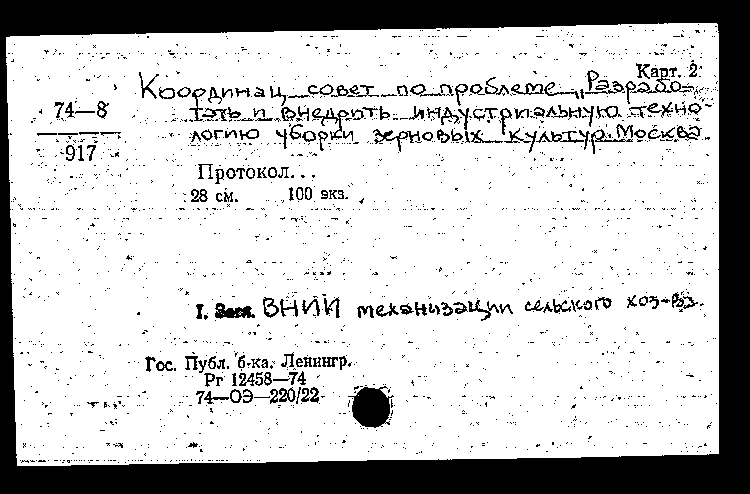 Карт. 2
Координац. совет по проблеме „Разрабо-
74—8
тать и внедрить индустриальную техно-
логию уборки зерновых культур. Москва
917
Протокол...
28 см. 100 экз.
I. Загл. ВНИИ механизации сельского хоз-ва.
Гос. Публ. б-ка. Ленингр.
Рг 12458—74
74—ОЭ—220/22